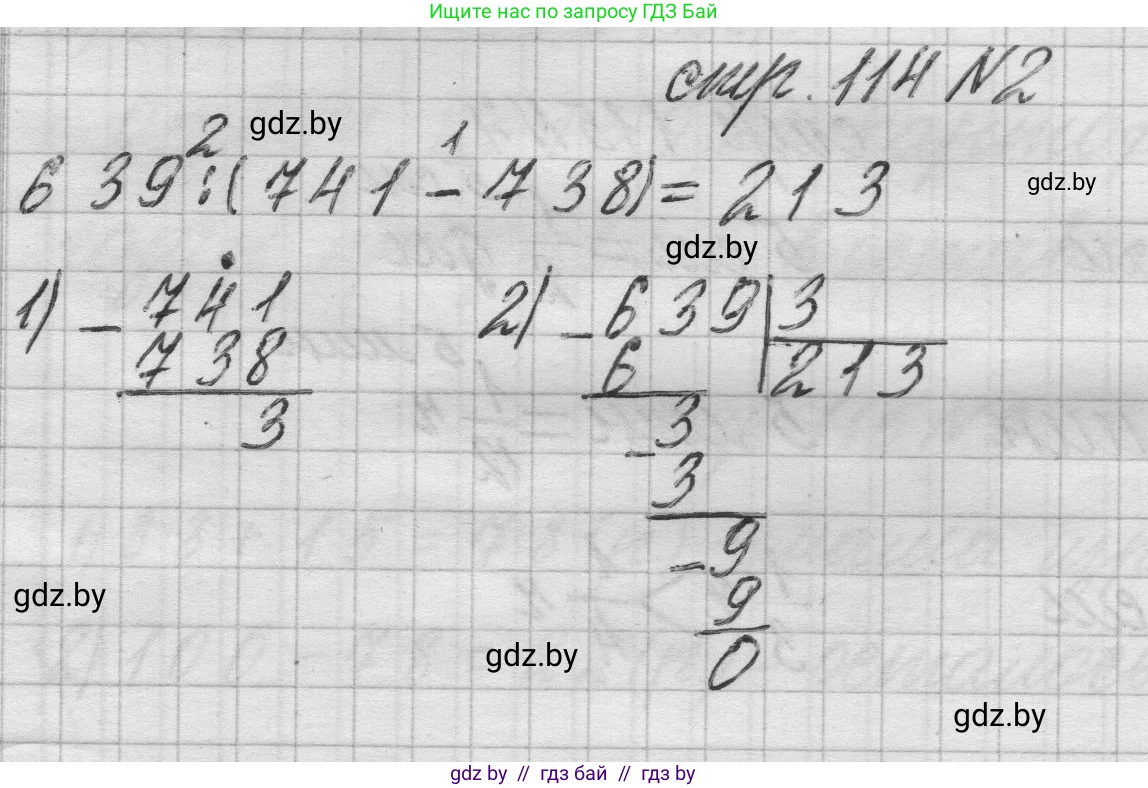 Ищите нас по запросу ГДЗ Бай
стр. 114 №2
gdz.by
2 1
639 : (741 - 738) = 213
gdz.by
gdz.by
1) - 741 2) - 639 | 3
738 6 213
3 - 3
3
- 9
gdz.by
9
gdz.by
0
gdz.by
gdz by // гдз бай // гдз by